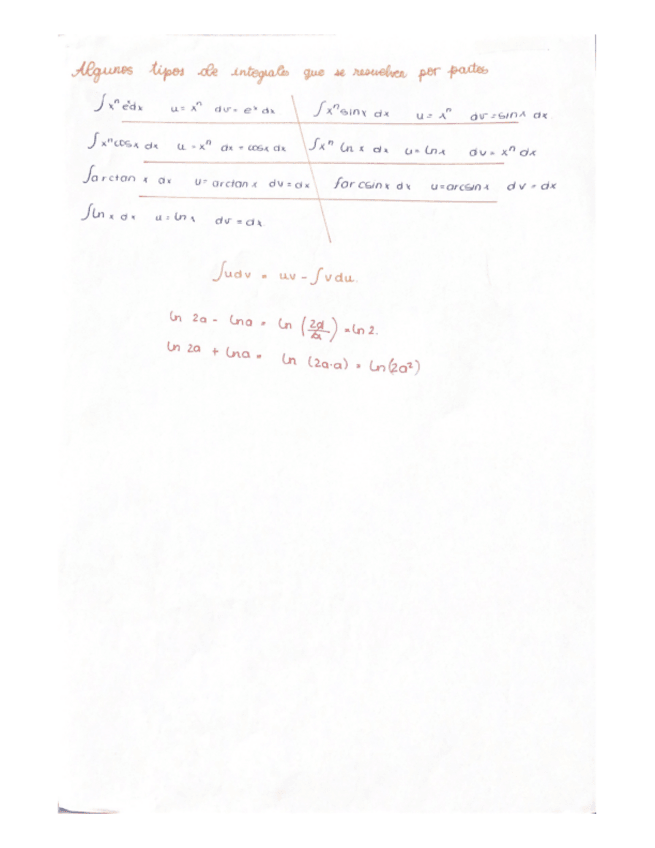 Algunos tipos de integrales que se resuelven por partes
∫xⁿeˣdx u = xⁿ dv = eˣ dx ∫xⁿ sinx dx u = xⁿ dv = sinx dx
∫xⁿcosx dx u = xⁿ dx = cosx dx ∫xⁿ ln x dx u = lnx dv = xⁿ dx
∫arctan x dx u = arctan x dv = dx ∫arcsinx dx u = arcsinx dv = dx
∫ln x dx u = ln x dv = dx
∫udv = uv - ∫vdu.
ln 2a - lna = ln (2a/a) = ln 2.
ln 2a + lna = ln (2a·a) = ln(2a²)